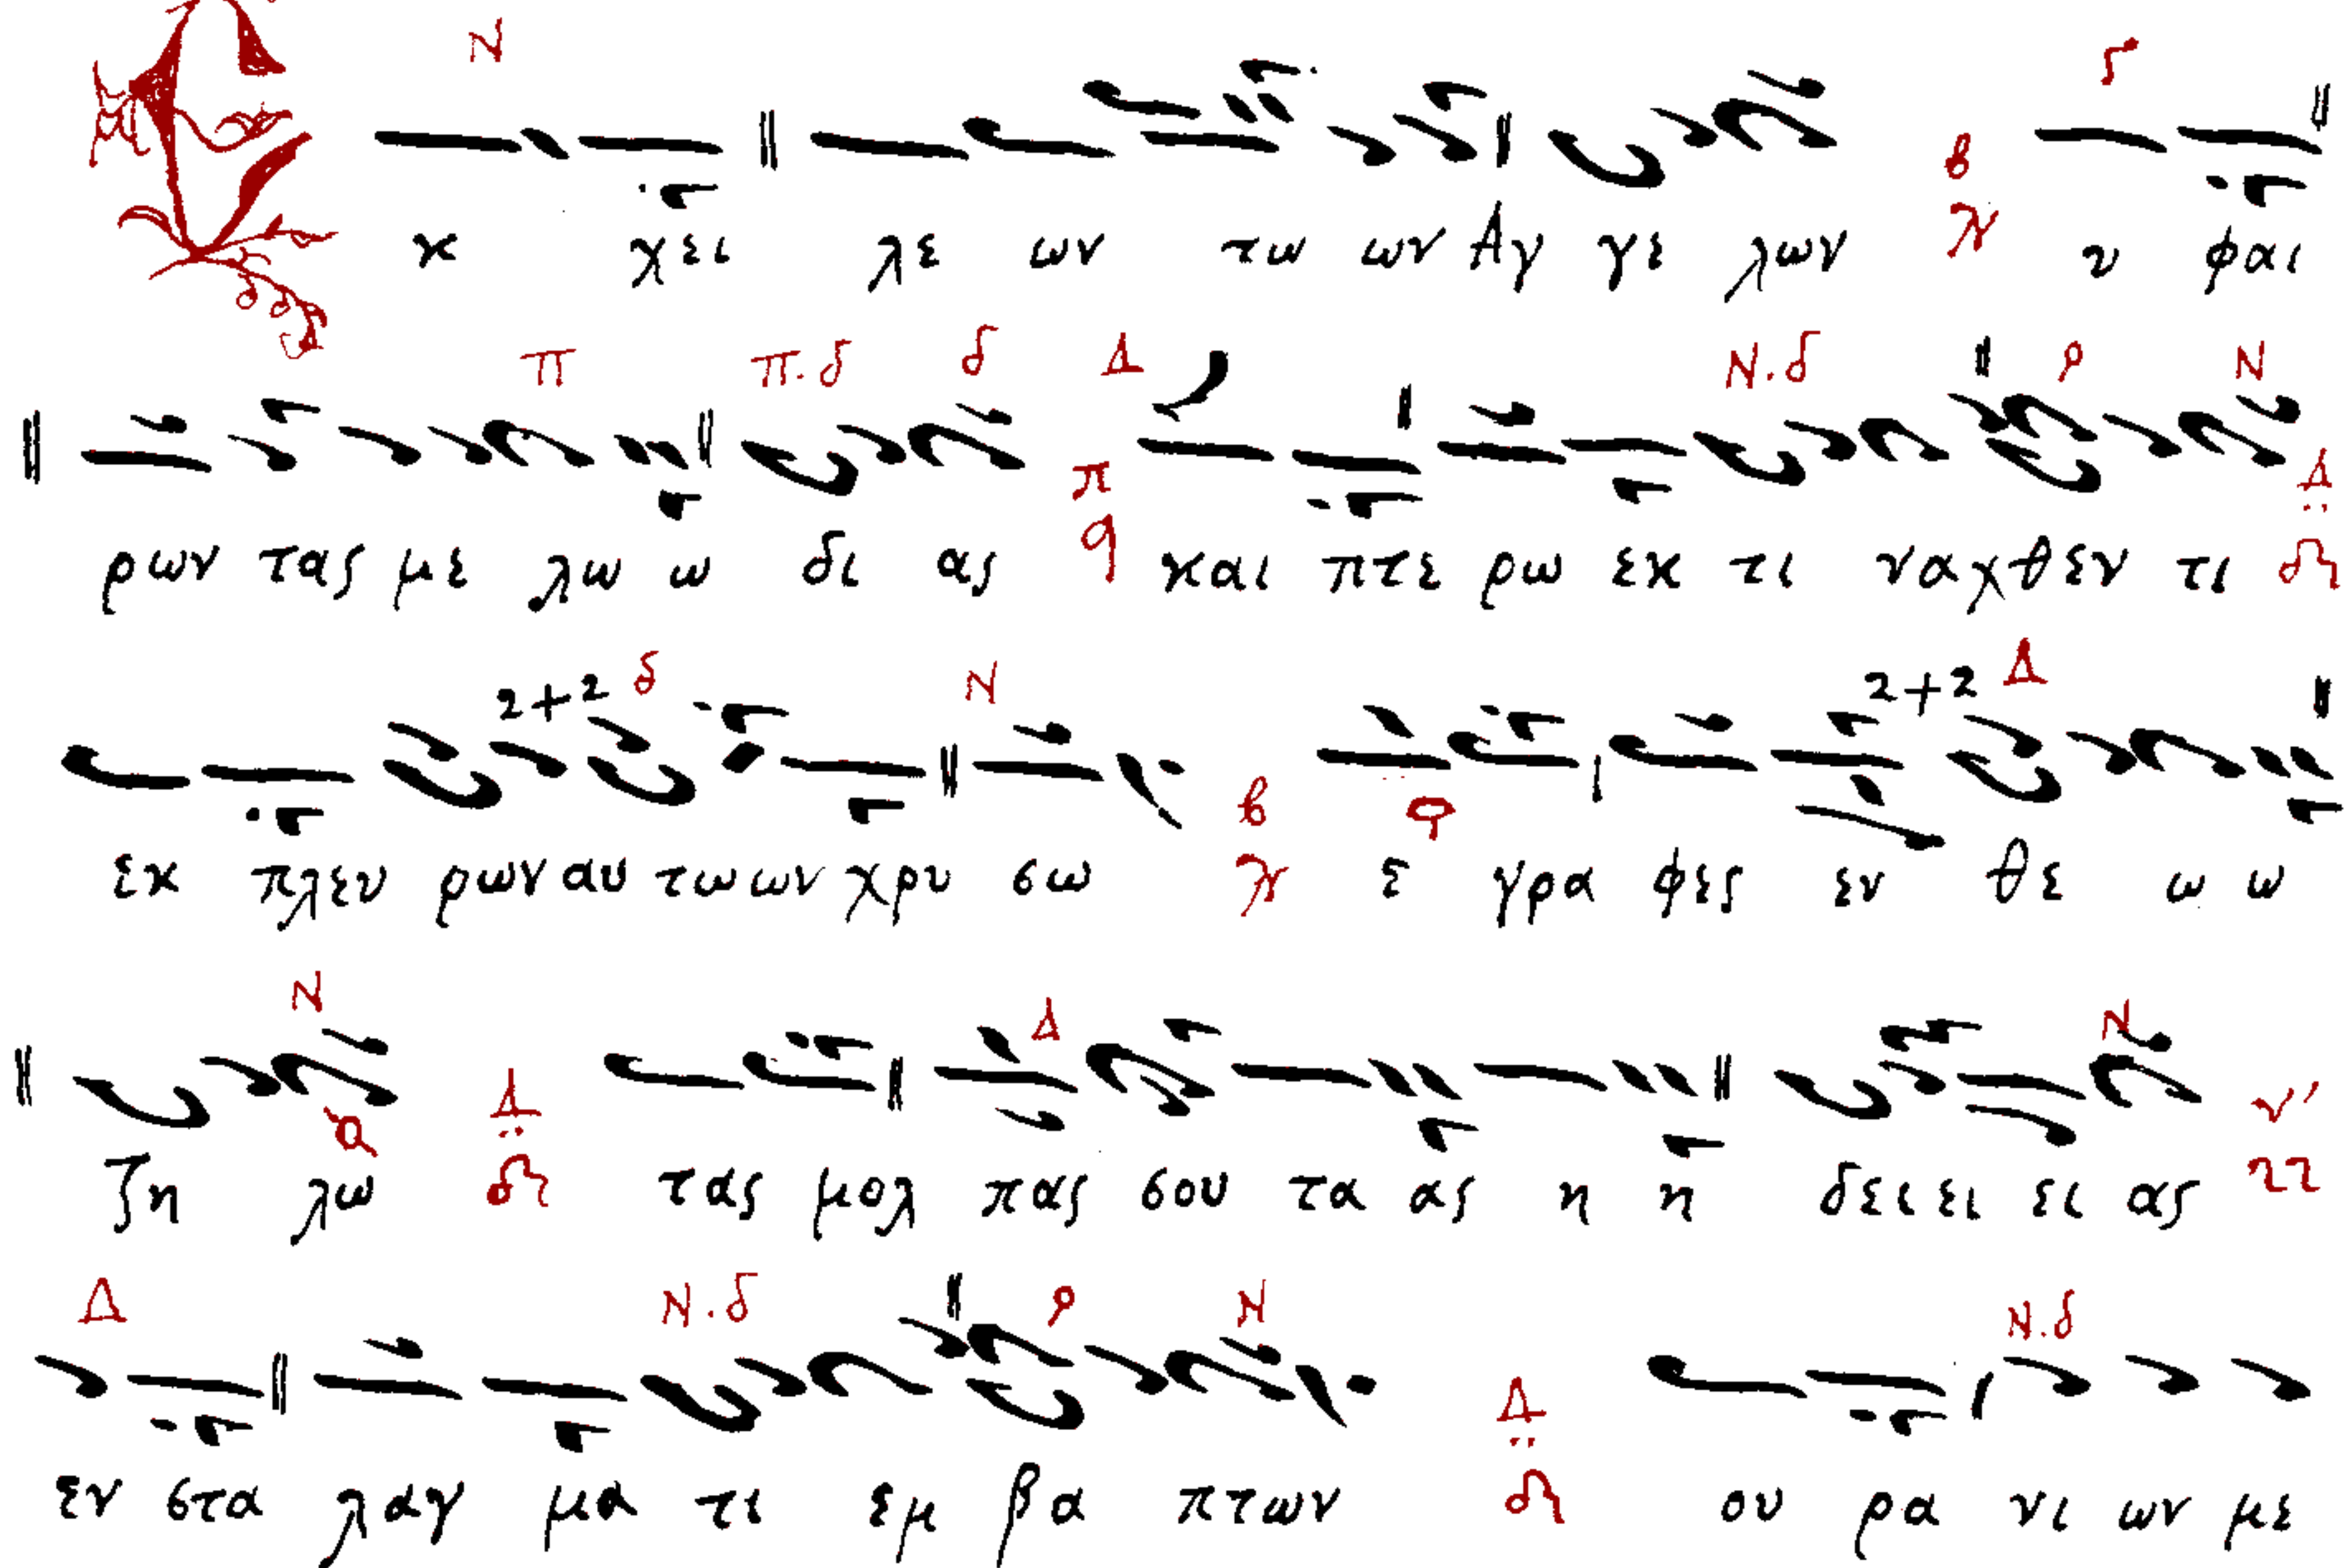 Ν
Εκ χει λε ων τω ων Αγ γε λων υ φαι
Π Π.δ δ Δ Ν.δ Ν
ρων τας με λω ω δι ας και πτε ρω εκ τι ναχ θεν τι
2+2 δ Ν 2+2 Δ
εκ πλευ ρων αυ τω ων χρυ σω ε γρα φες εν θε ω ω
Ν Δ Ν
ζη λω τας μολ πας σου τα ας η η δει ει ει ας
Δ Ν.δ Ν Ν.δ
εν στα λαγ μα τι εμ βα πτων ου ρα νι ων με